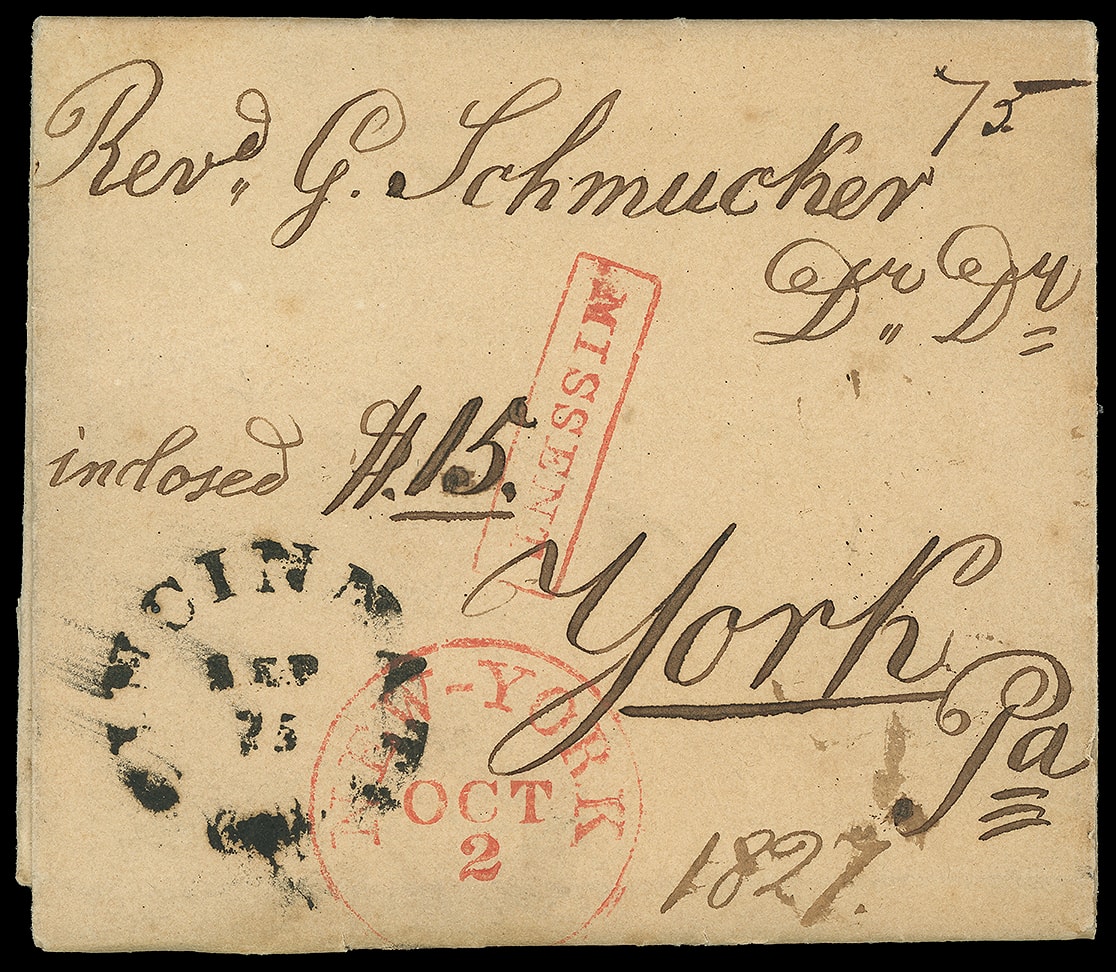 75
Rev,,d G. Schmucker
Dr,, Dy
MISSENT
inclosed $.15.
York
Pa
CINCINNATI
SEP
25
NEW-YORK
OCT
2
1827.